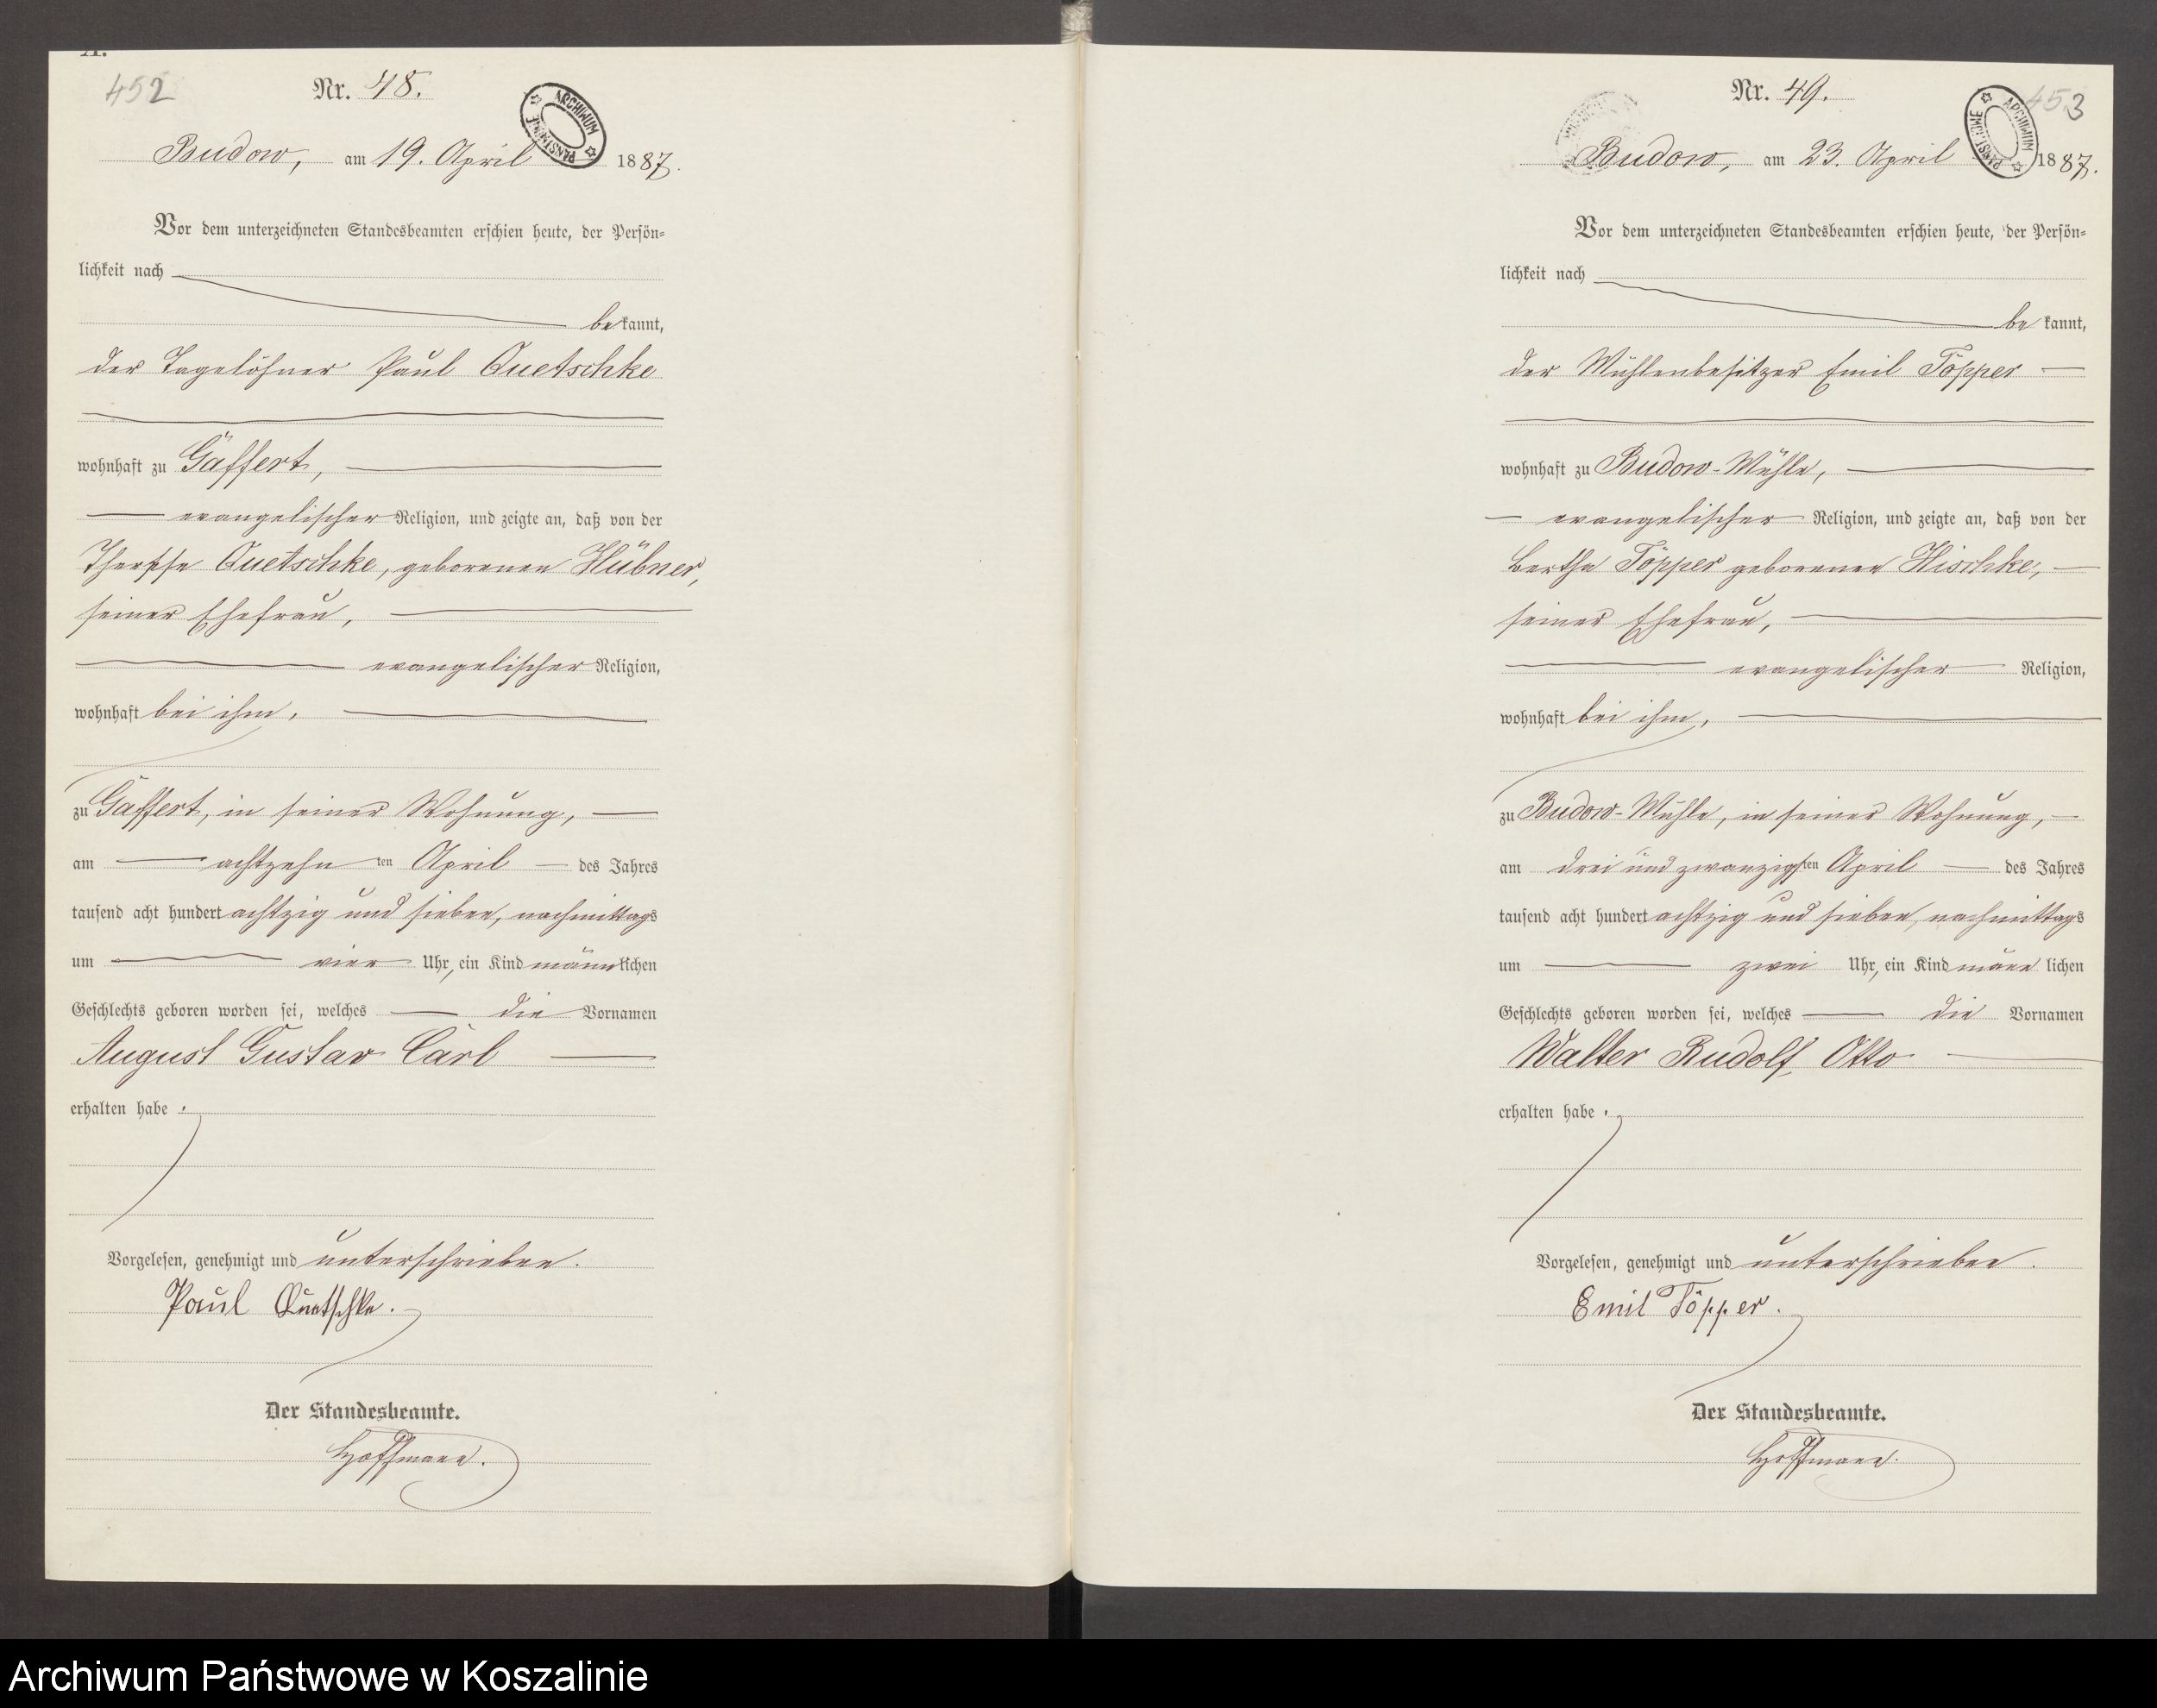 A.
452
Nr. 48.
ARCHIWUM PAŃSTWOWE
Budow, am 19. April 1887.
Vor dem unterzeichneten Standesbeamten erschien heute, der Persön-
lichkeit nach
bekannt,
der Tagelöhner Paul Quetschke
wohnhaft zu Gaffert,
evangelischer Religion, und zeigte an, daß von der
Quetschke, geborenen Hübner,
seiner Ehefrau,
evangelischer Religion,
wohnhaft bei ihm,
zu Gaffert, in seiner Wohnung,
am achtzehn ten April des Jahres
tausend acht hundert achtzig und sieben, nachmittags
um vier Uhr, ein Kind männlichen
Geschlechts geboren worden sei, welches die Vornamen
August Gustav Carl
erhalten habe.
Vorgelesen, genehmigt und unterschrieben.
Paul Quetschke.
Der Standesbeamte.
Hoffmann.
453
Nr. 49.
ARCHIWUM PAŃSTWOWE
Budow, am 23. April 1887.
Vor dem unterzeichneten Standesbeamten erschien heute, der Persön-
lichkeit nach
bekannt,
der Mühlenbesitzer Emil Töpper
wohnhaft zu Budow-Mühle,
evangelischer Religion, und zeigte an, daß von der
Bertha Töpper geborenen Hischke,
seiner Ehefrau,
evangelischer Religion,
wohnhaft bei ihm,
zu Budow-Mühle, in seiner Wohnung,
am drei und zwanzigsten April des Jahres
tausend acht hundert achtzig und sieben, nachmittags
um zwei Uhr, ein Kind männlichen
Geschlechts geboren worden sei, welches die Vornamen
Walter Rudolf Otto
erhalten habe.
Vorgelesen, genehmigt und unterschrieben.
Emil Töpper.
Der Standesbeamte.
Hoffmann.
Archiwum Państwowe w Koszalinie